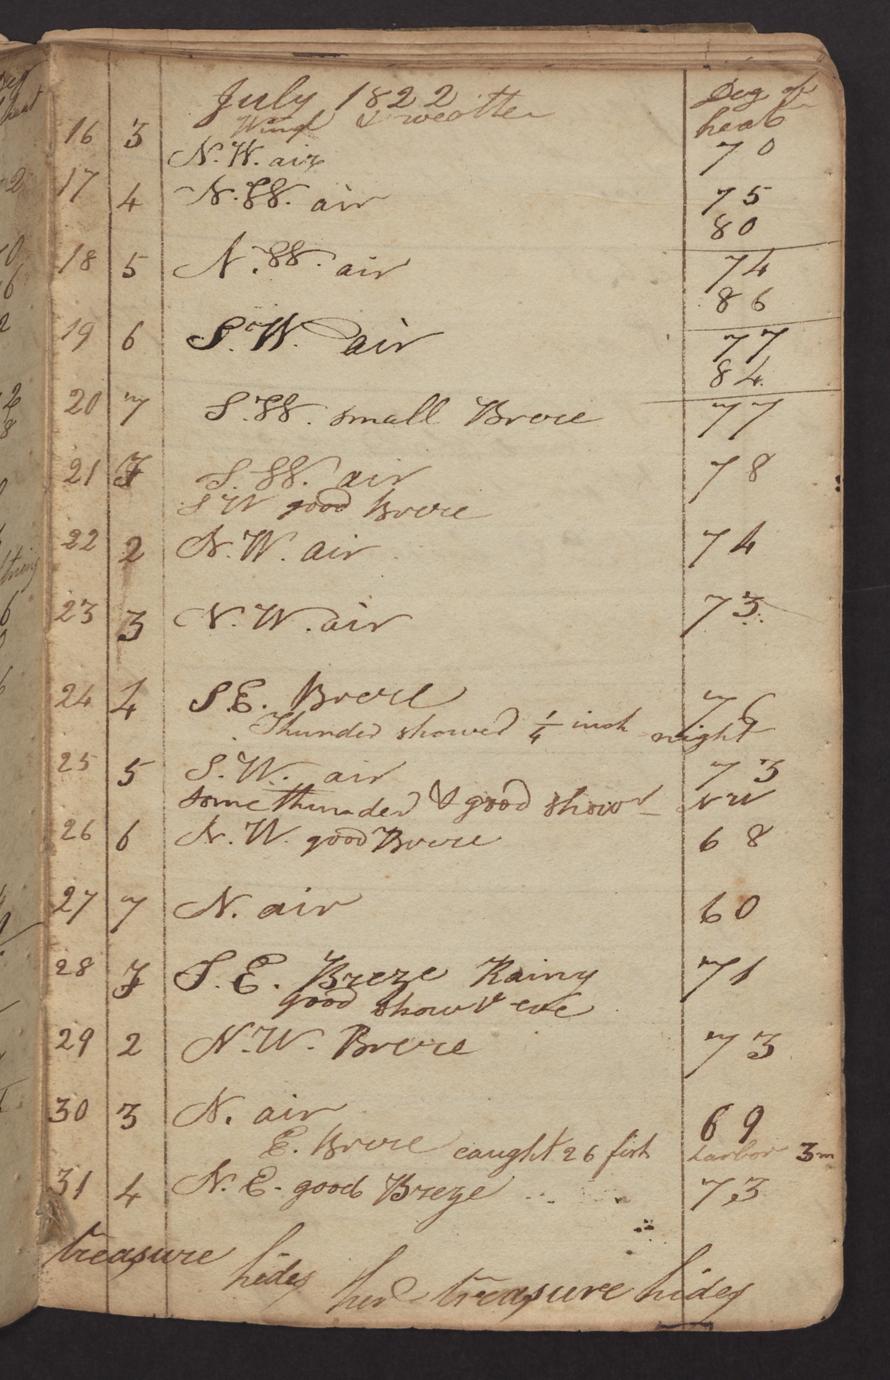 July 1822 Deg of
Wind & weather heat
16 3 N.W. air 70
17 4 N.W. air 75
80
18 5 N.W. air 74
86
19 6 S.W. air 77
84
20 7 S.W. small Breze 77
21 F S.W. air 78
S W good Breze
22 2 N.W. air 74
23 3 N.W. air 73
24 4 S.E. Breze 76
Thunder shower 1/4 inch night
25 5 S.W. air 73
some thunder & good shower NW
26 6 N.W. good Breze 68
27 7 N. air 60
28 F S.E. Breze Rainy 71
good shower eve
29 2 N.W. Breze 73
30 3 N. air 69
E. Breze caught 26 fish harbor 3m
31 4 N.E. good Breze 73
treasure
hides her treasure hides